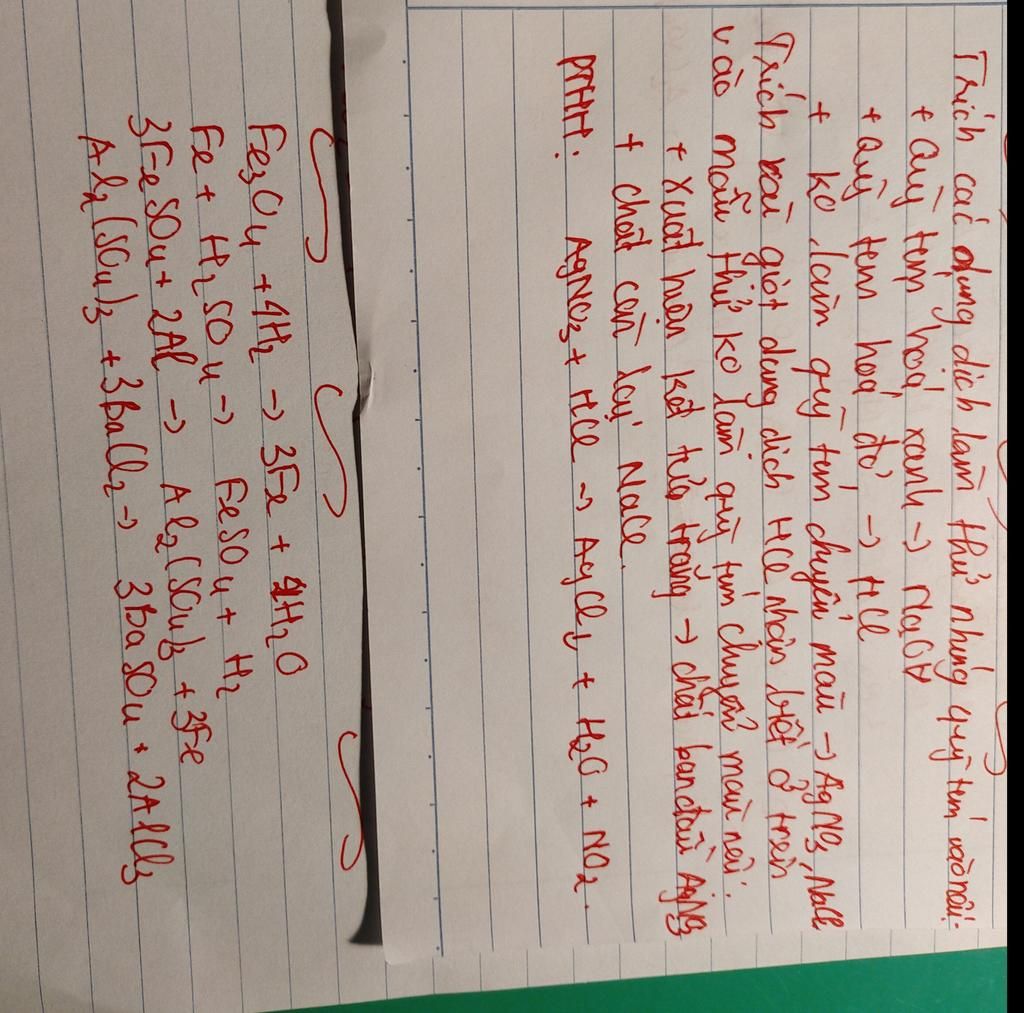 Trích các dung dịch làm thử nhúng quỳ tím vào nếu:
+ quỳ tím hoá xanh → NaOH
+ quỳ tím hoá đỏ → HCl
+ ko làm quỳ tím chuyển màu → AgNO3, NaCl
Trích vài giọt dung dịch HCl nhận biết ở trên
vào mẫu thử ko làm quỳ tím chuyển màu nếu:
+ Xuất hiện kết tủa trắng → chất ban đầu AgNO3
+ chất còn lại NaCl.
PTHH: AgNO3 + HCl → AgCl↓ + H2O + NO2.
Fe3O4 + 4H2 → 3Fe + 4H2O
Fe + H2SO4 → FeSO4 + H2
3FeSO4 + 2Al → Al2(SO4)3 + 3Fe
Al2(SO4)3 + 3BaCl2 → 3BaSO4 + 2AlCl3